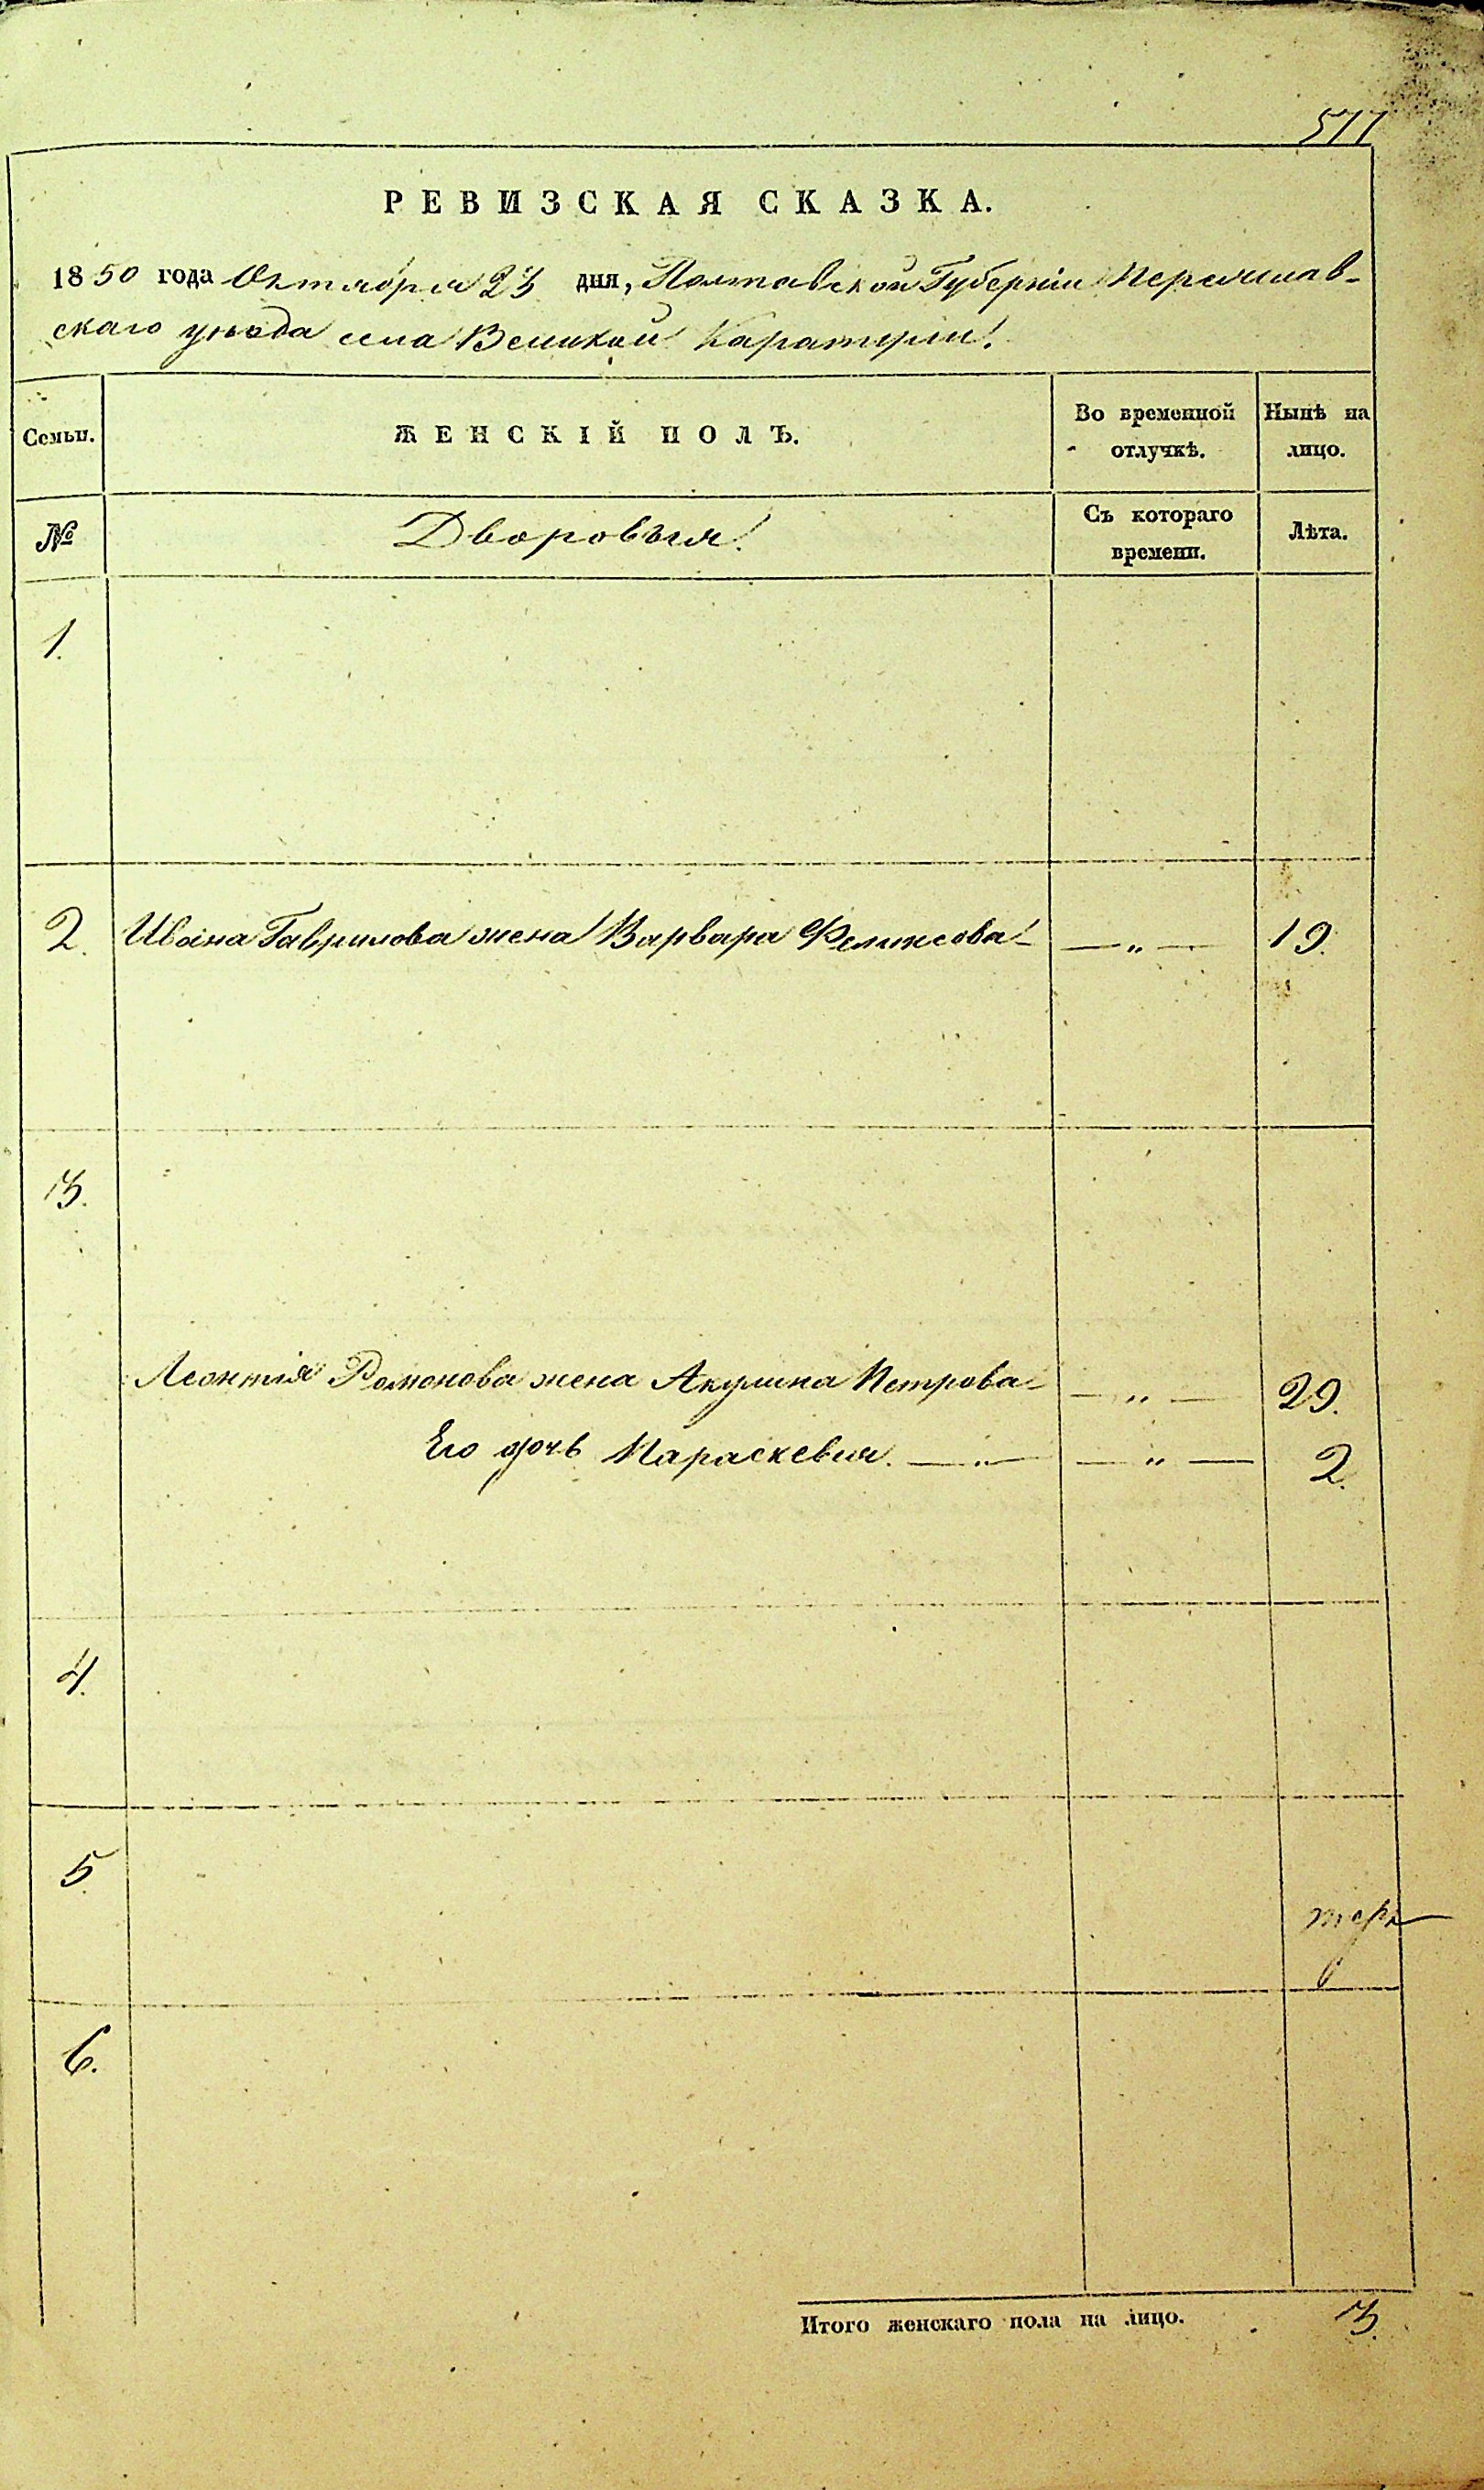 577
РЕВИЗСКАЯ СКАЗКА.
1850 года Октября 23 дня, Полтавской Губерніи Переяслав-
скаго уѣзда села Великой Каратули.
Семьи.
ЖЕНСКІЙ ПОЛЪ.
Во временной
отлучкѣ.
Нынѣ на
лицо.
№
Дворовыя.
Съ котораго
времени.
Лѣта.
1.
2. Ивана Гаврилова жена Варвара Феликсова — „ — 19.
3.
Леонтія Романова жена Акулина Петрова — „ — 29.
Его дочь Параскевия. — „ — — „ — 2.
4.
5.
6.
Итого женскаго пола на лицо. 3.